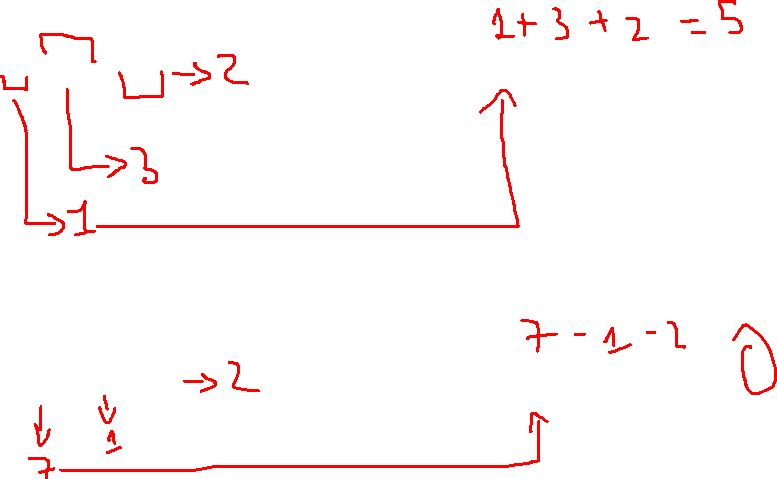 1+3+2=5
→2
→3
→1
7-1-2
→2
1
7